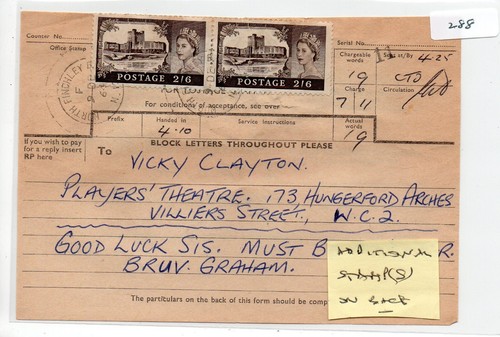 288
Counter No.
Office Stamp
POSTAGE 2/6
POSTAGE 2/6
Serial No.
Chargeable words
19
Sent at/By
4.25
LTD
Charge
7 11
Circulation
For conditions of acceptance, see over
Actual words
19
Prefix
Handed in
4.10
Service Instructions
If you wish to pay
for a reply insert
RP here
BLOCK LETTERS THROUGHOUT PLEASE
To
VICKY CLAYTON.
PLAYERS' THEATRE. 173, HUNGERFORD ARCHES
VILLIERS STREET, W.C.2.
GOOD LUCK SIS. MUST
BRUV. GRAHAM.
ADDITIONAL
STAMP(S)
ON BACK
The particulars on the back of this form should be